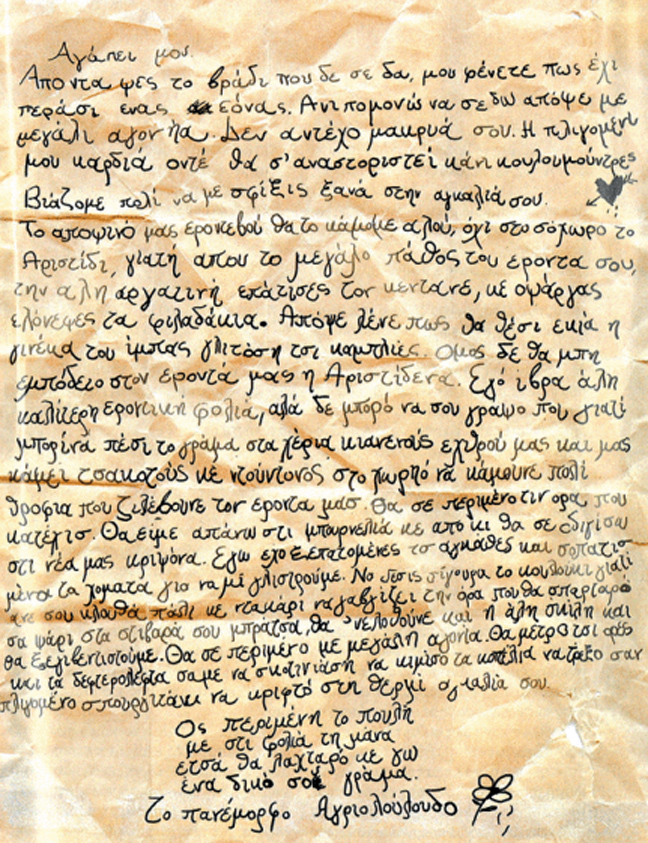 Αγάπει μου.
Απο ντα ψες το βράδι που δε σε δα, μου φένετε πως έχι
περάσι ενας εόνας. Ανιπομονώ να σε δω απόψε με
μεγάλι αγονήα. Δεν αντέχο μακρυά σου. Η πλιγομένι
μου καρδιά οντέ θα σ'αναστοριστεί κάνι κουλουμούντρες
Βιάζομε πολί να με σφίξις ξανά στην αγκαλιά σου.
Το αποψινό μας εροντεβού θα το κάμομε αλού, όχι στο σόχωρο το
Αριστίδι, γιατή απου το μεγάλο πάθος του εροντα σου,
την αλη αργατινή επάτισες τον κεντανέ, κε οψάργας
ελόνεψες τα φιλαδάκια. Απόψε λένε πως θα θέσι εκιά η
γινέκα του ίμπας γλιτόση τσι καμπλιές. Ομος δε θα μπη
εμπόδειο στον έροντά μας η Αριστίδενα. Εγό ίβρα άλη
καλίτερη εροντική φολιά, αλά δε μπορό να σου γραψο που γιατί
μπορίνα πέσι το γράμα στα χέρια κιανενούς εχθρού μας και μας
κάμει τσακοτούς κε ντούντονος στο χωρηό να κάμουνε πολί
θροφια που ζιλέβουνε τον εροντα μας. Θα σε περιμένο τιν ορα που
κατέχις. Θα είμε απάνω στι μπουρνελιά κε απο κι θα σε οδιγίσω
στι νέα μας κριψόνα. Εγω εχο ξεπατομένες τσ αγκάθες και σοπατισ
μένα τα χοματα για να μι γλιστρούμε. Νο δεσις σίγουρα το κουλούκι γιατί
ανε σου κλουθά πάλι κε ντακάρι να γαβγίζει την όρα που θα σπαρταρό
σα ψάρι στα στιβαρά σου μπράτσα, θα 'νελοθούνε και η άλη σκίλη και
θα ξεγιβεντιστούμε. Θα σε περιμένο με μεγάλη αγονία. Θα μέτρο τσι ορές
και τα δεφτερολέφτα σαμε να σκοτινιάση να κιμίσο τα κοπέλια να τρέξο σαν
πλιγομένο σπουργιτάκι να κριφτό στη θερμί αγκαλιά σου.
Ος περιμένη το πουλη
με στι φολιά τη μάνα
ετσά θα λαχταρό κε γω
ένα δικό σου γράμα.
Το πανέμορφο Αγριολούλουδο